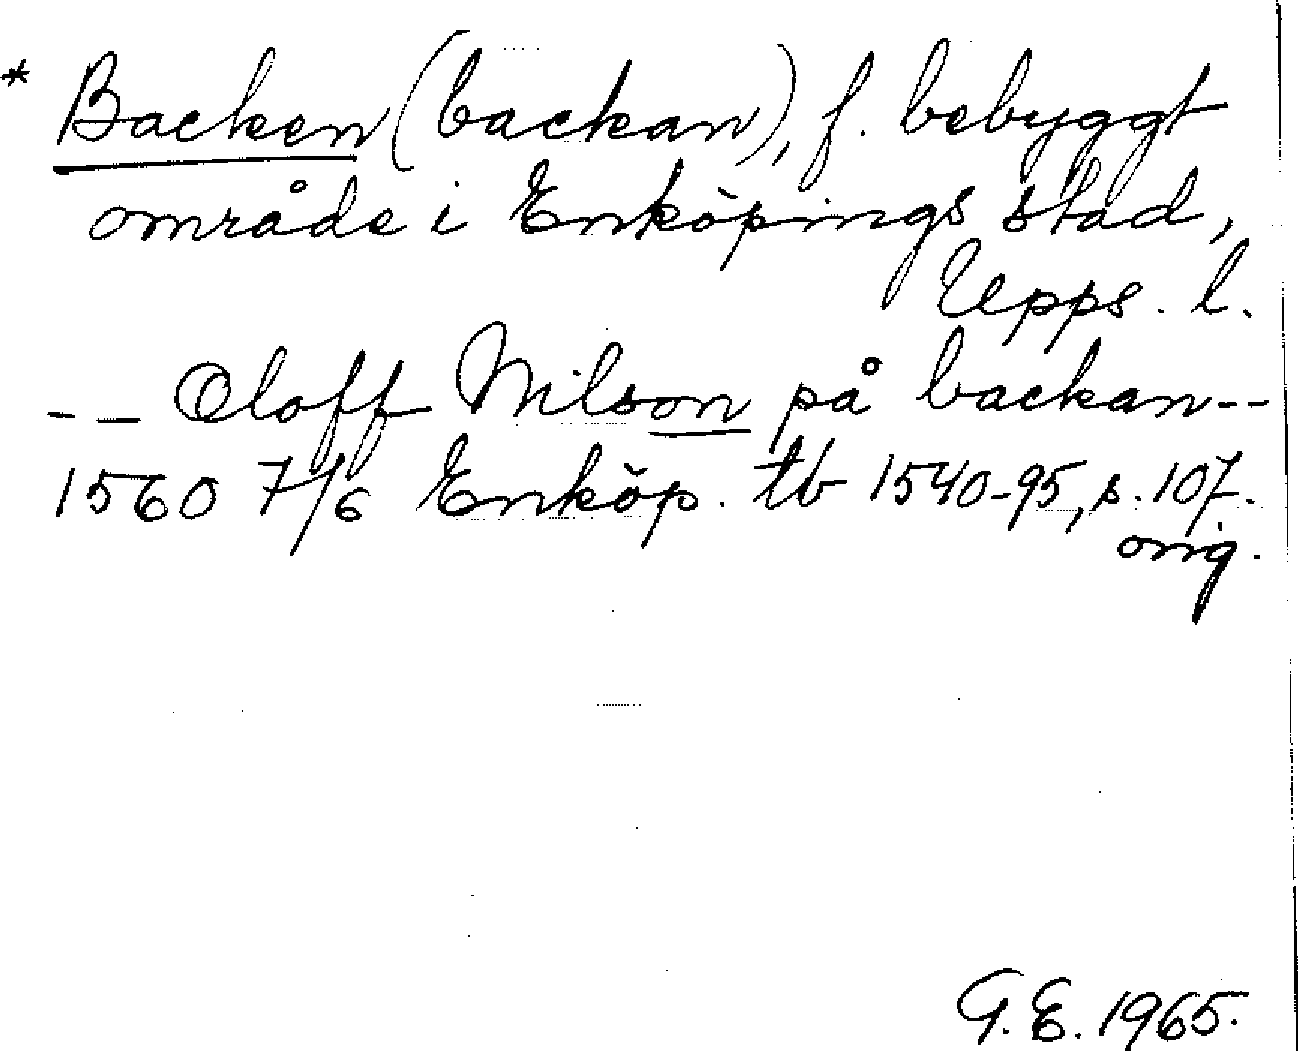 * Backen (backan), f. bebyggt
område i Enköpings stad,
Upps. l.
-- Oloff Nilson på backan--
1560 7/6 Enköp. tb 1540-95, s. 107.
orig.
G.E. 1965.